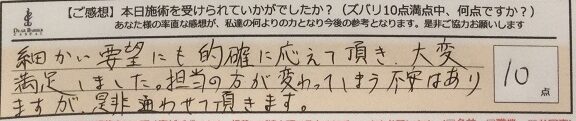 【ご感想】本日施術を受けられていかがでしたか？（ズバリ10点満点中、何点ですか？）
あなた様の率直な感想が、私達の何よりの力となり今後の参考となります。是非ご協力お願いします
細かい要望にも的確に応えて頂き、大変
満足しました。担当の方が変わってしまう不安はあり
ますが、是非通わせて頂きます。
10点